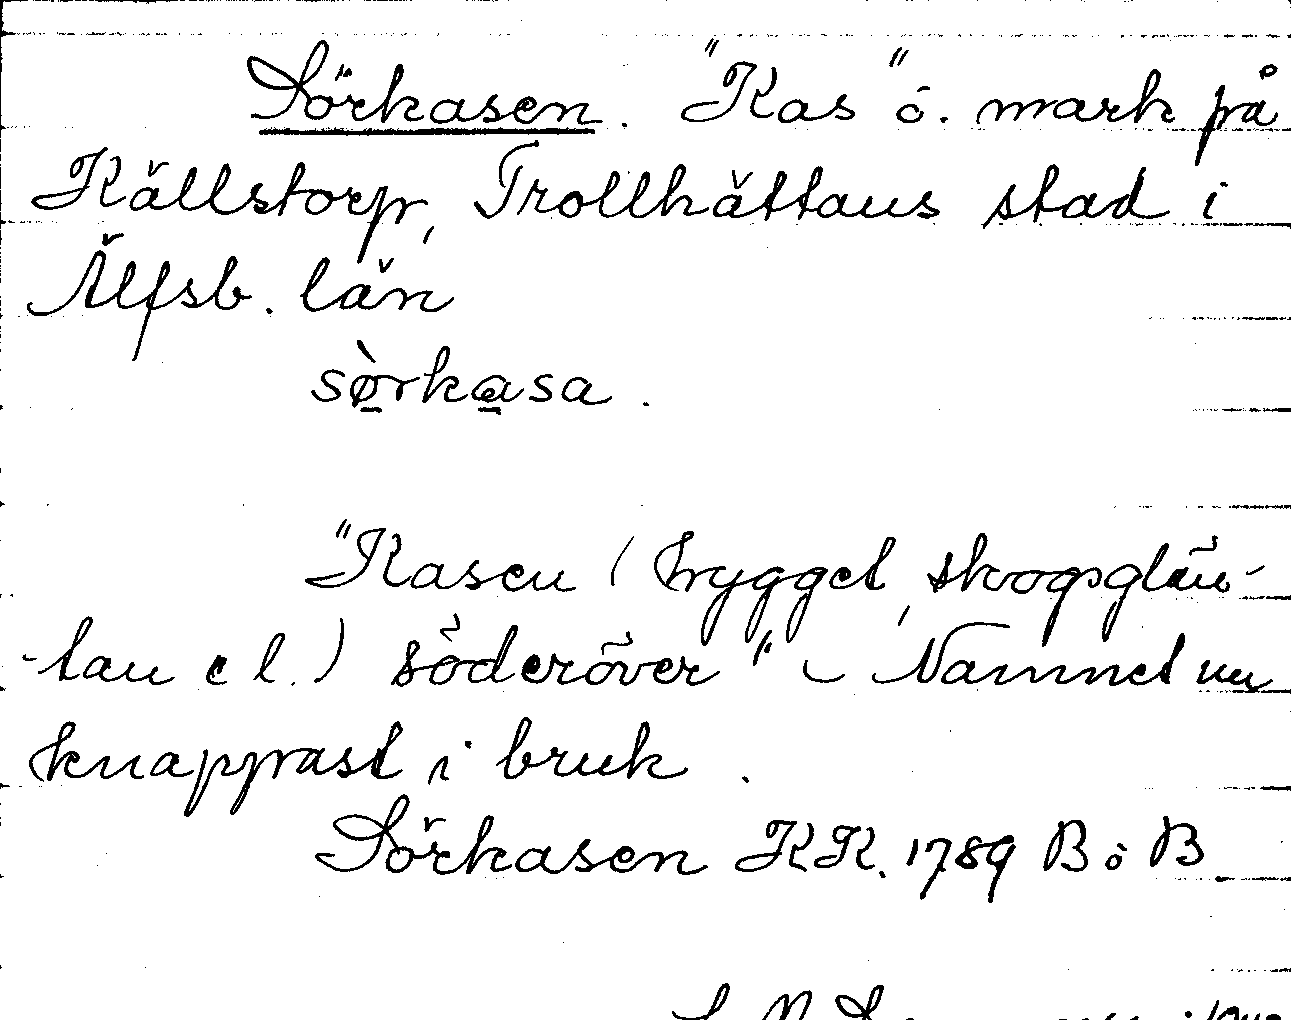 Sörkasen. "Kas" ö. mark på
Källstorp, Trollhättans stad i
Älfsb. län
sø̀rkasa.
"Kasen (hygget, skogsglän-
-tan e l.) söderöver" – Namnet nu
knappast i bruk.
Sörkasen KK. 1789 B ö B